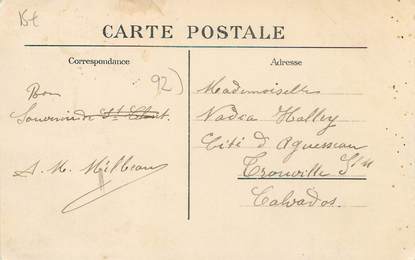 CARTE POSTALE
Correspondance
Adresse
92)
Bon
Souvenir de
A. M. Milbeau
Mademoiselle
Nadia Halley
Cité d'Aguesseau
Trouville S/M
Calvados.